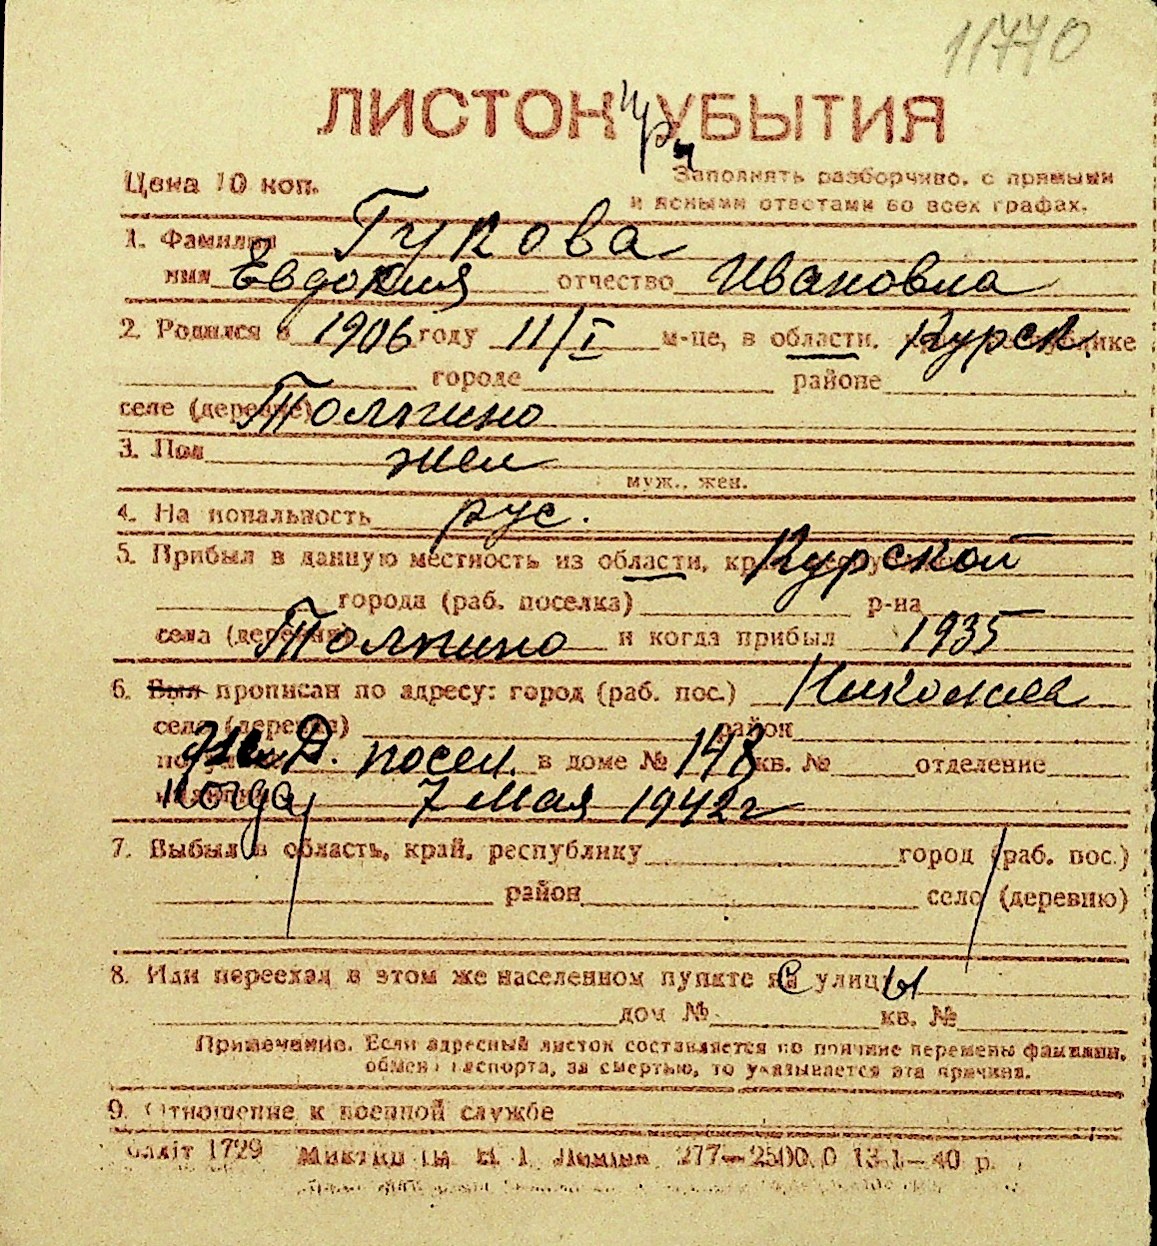 11770
ЛИСТОК при УБЫТИЯ
Цена 10 коп.
Заполнять разборчиво, с прямыми
и ясными ответами во всех графах.
1. Фамилия Гукова
имя Евдокия отчество Ивановна
2. Родился в 1906 году 11/I м-це, в области, Курск
городе районе
селе (деревне) Толпино
3. Пол жен
муж., жен.
4. Национальность рус.
5. Прибыл в данную местность из области, Курской
города (раб. поселка) р-на
села (деревни) Толпино и когда прибыл 1935
6. Был прописан по адресу: город (раб. пос.) Николаев
села (деревня) район
посел. в доме № 148 кв. № отделение
Когда 7 мая 1942 г
7. Выбыл в область, край, республику город (раб. пос.)
район село (деревню)
8. Или переехал в этом же населенном пункте с улицы
дом № кв. №
Примечание. Если адресный листок составляется по причине перемены фамилии,
обмена паспорта, за смертью, то указывается эта причина.
9. Отношение к военной службе
1729 277—2500.0 13-1—40 р.